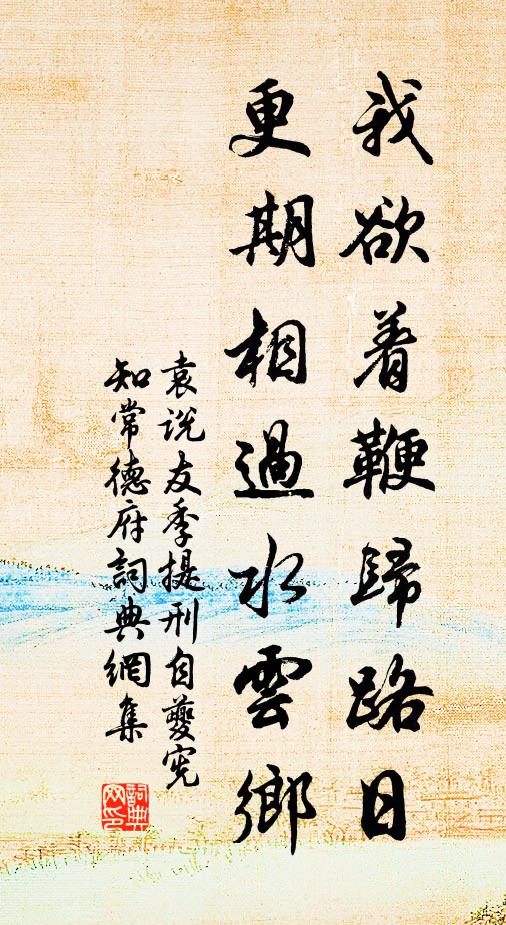 我欲着鞭歸路日
更期相過水雲鄉
袁说友季提刑自夔宪
知常德府詞典網集
詞典
网印